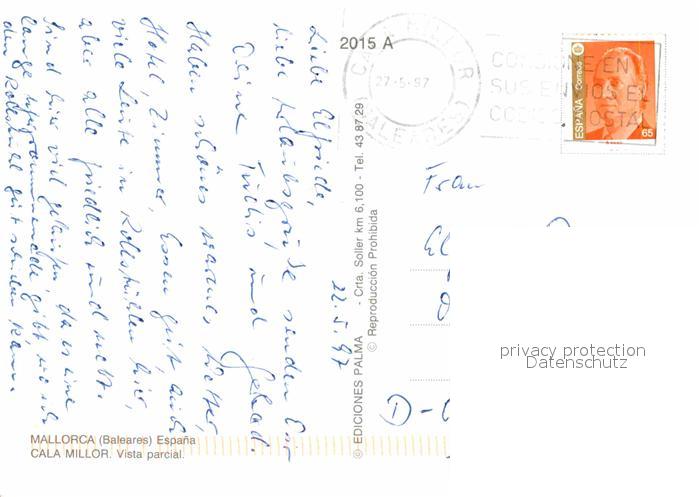 2015 A
CALA MILLOR
27-5-97
BALEARES
CONSIGNE EN
SUS ENVIOS EL
CODIGO POSTAL
ESPAÑA Correos
65
22.5.97
Liebe Elfriede,
liebe Urlaubsgrüße senden Dir
Deine und Gerhard.
Haben schönes warmes Wetter,
Hotel, Zimmer, Essen gut, auch
viele Leute in Rollstühlen hier,
aber alle friedlich und nett.
Sind hier viel gelaufen, da es eine
lange gibt, wo ich
den Rollstuhl gut kann.
Frau
El
D-
© EDICIONES PALMA - Crta. Soller km 6,100 - Tel. 43 87 29
© Reproducción Prohibida
privacy protection
Datenschutz
MALLORCA (Baleares) España
CALA MILLOR. Vista parcial.